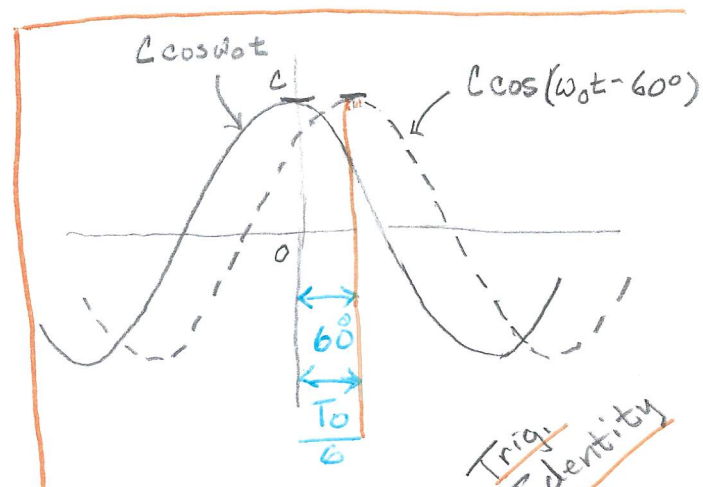 C cos ω₀t
C
C cos(ω₀t - 60°)
0
60°
T₀
6
Trig.
Identity